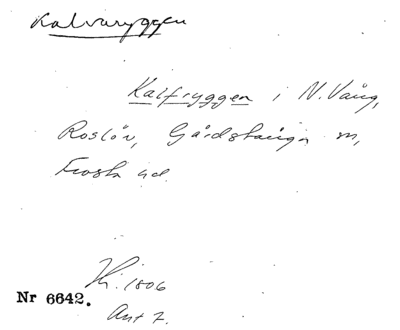 Kalvaryggen
Kalfryggen i N. Vång,
Roslöv, Gårdstånga m,
Frosta hd.
Hi. 1806
Nr 6642.
Ant 7.